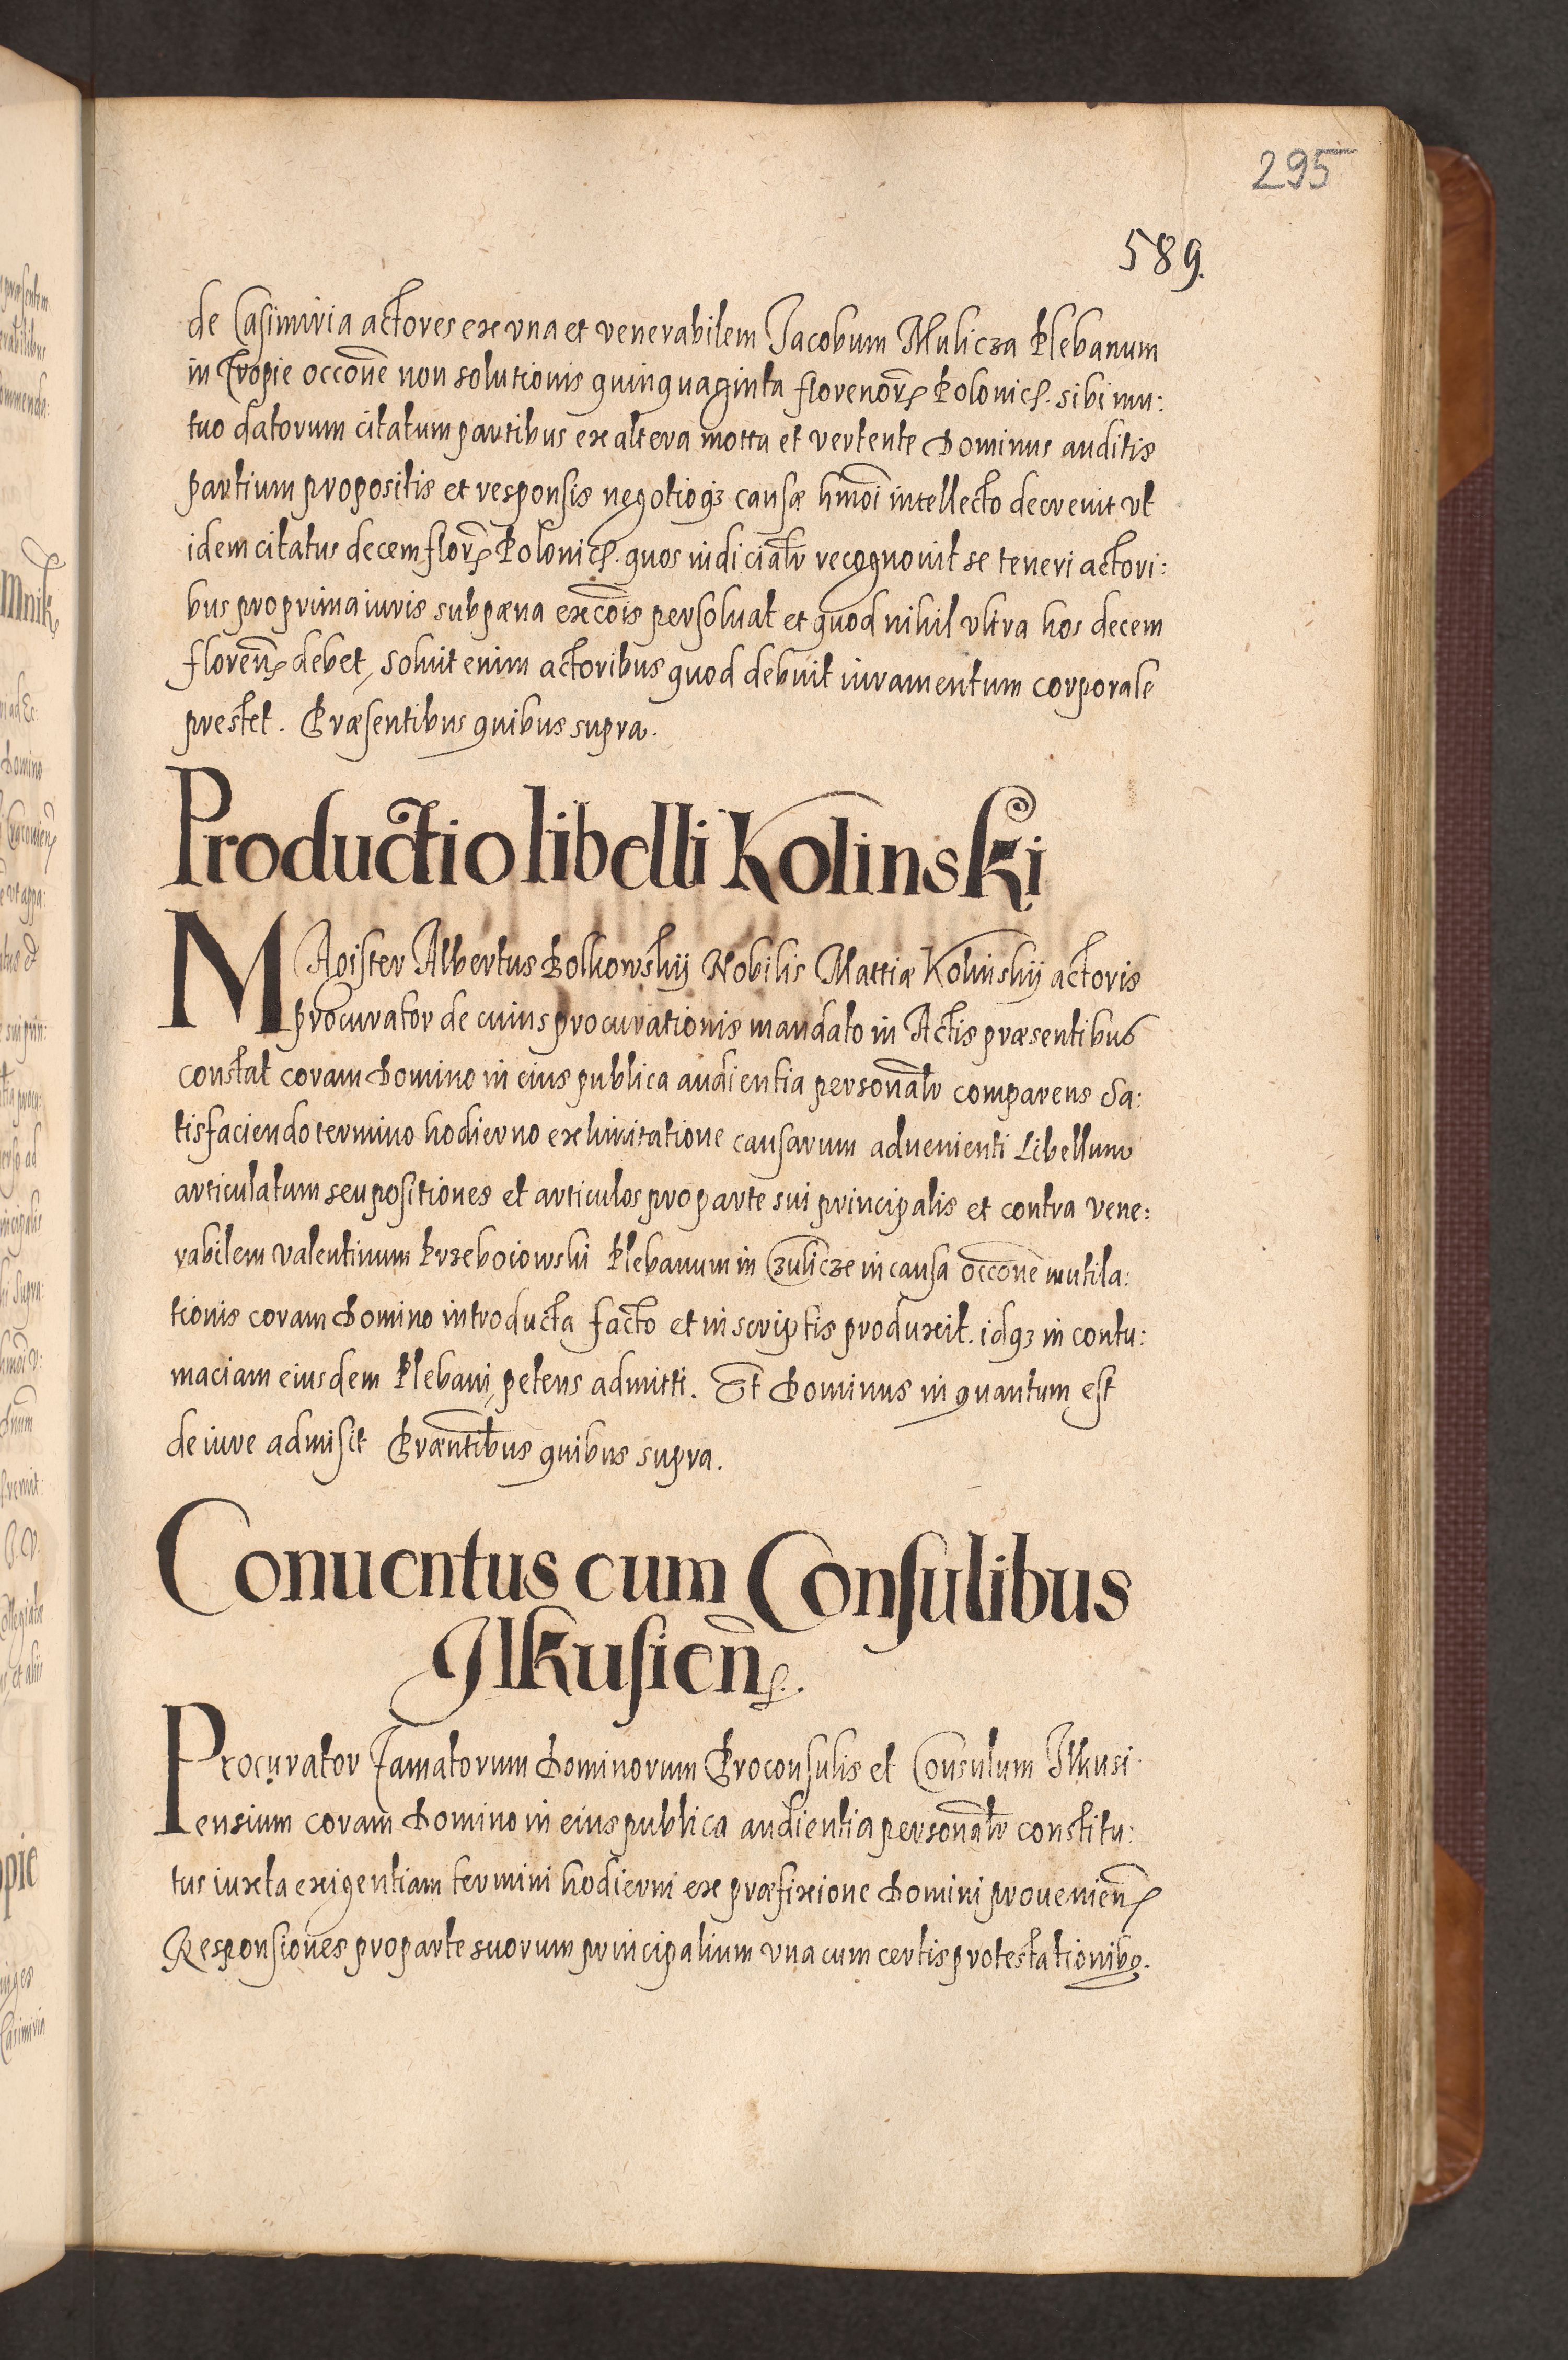 295
589.
de Casimiria actores ex vna et venerabilem Jacobum Mulicza Plebanum
in Tropie occōne non solutionis quinquaginta florenor̄ Polonic. sibi mu:
tuo datorum citatum partibus ex altera mota et vertente Dominus auditis
partium propositis et responsis negotioq3 causæ hmōi intellecto decreuit vt
idem citatus decem flor̄ Polonic. quos iudicialr̄ recognouit se teneri actori:
bus pro prima iuris sub pæna excōis persoluat et quod nihil vltra hos decem
floren̄ debet, soluit enim actoribus quod debuit iuramentum corporale
prestet. Præsentibus quibus supra.
Productio libelli Kolinski
MAgister Albertus Bolkowskij Nobilis Mattiæ Kolinskij actoris
procurator de cuius procurationis mandato in Actis præsentibus
constat coram Domino in eius publica audientia personalr̄ comparens Sa:
tisfaciendo termino hodierno ex limitatione causarum aduenienti Libellum
articulatum seu positiones et articulos pro parte sui principalis et contra vene:
rabilem valentinum Przeboiowski Plebanum in Zulicze in causa occōne mutila:
tionis coram Domino introducta facto et in scriptis produxit. idq3 in contu:
maciam eiusdem Plebani, petens admitti. Et Dominus in quantum est
de iure admisit Præntibus quibus supra.
Conuentus cum Consulibus
Ilkusien̄.
Procurator famatorum Dominorum Proconsulis et Consulum Ilkusi
ensium coram Domino in eius publica audientia personalr̄ constitu:
tus iuxta exigentiam termini hodierni ex præfixione Domini prouenien̄
Responsiones pro parte suorum principalium vna cum certis protestationibq.